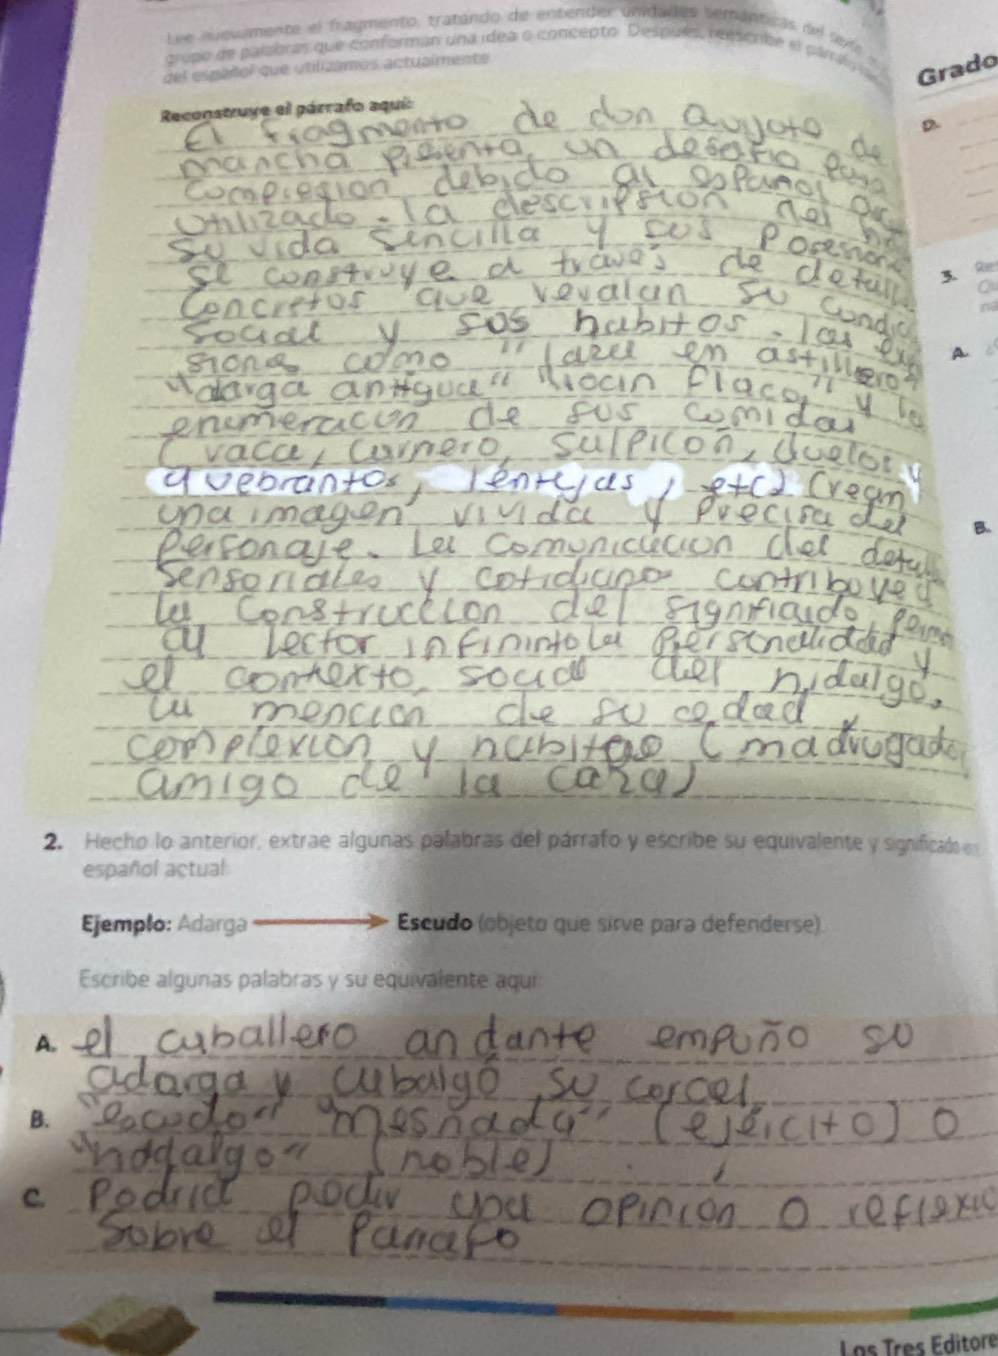 Lee nuevamente el fragmento, tratando de entender unidades semánticas del texto
grupo de palabras que conforman una idea o concepto. Después, reescribe el párrafo
del español que utilizamos actualmente
Grado
Reconstruye el párrafo aquí:
El fragmento de don quijote de
D.
mancha presenta un desafio para
compresion debido al español
utilizado. la descripsion del
su vida sencilla y sus posesion
se construye a traves de detall
3.
concretos que revalan su condic
social y sos habitos. las exp
siones como "laza en astillero"
A.
"adarga antigua" "rocin flaco" y la
enumeracion de sus comidas
(vaca, carnero, sulpicon, duelos y
quebrantos, lentejas, etc). Crean
una imagen vivida y precisa del
B.
Personaje. La comunicacion del detall
sensoriales y cotidiano contribuye a
la construccion del significado, permi
al lector infinintola personalidad y
el contexto social del hidalgo.
la mencion de su cedad y
complexion y habitos (madrugado
amigo de la caza)
2. Hecho lo anterior, extrae algunas palabras del párrafo y escribe su equivalente y significado en
español actual:
Ejemplo: Adarga Escudo (objeto que sirve para defenderse).
Escribe algunas palabras y su equivalente aquí:
A. el caballero andante empuño so
adarga y cabalgo su corcel
B. "escudo" "mesnada" (ejercito) o
"hidalgo" (noble)
C. Podrid pedir una opinion o reflexio
Sobre el Parrafo
Los Tres Editore